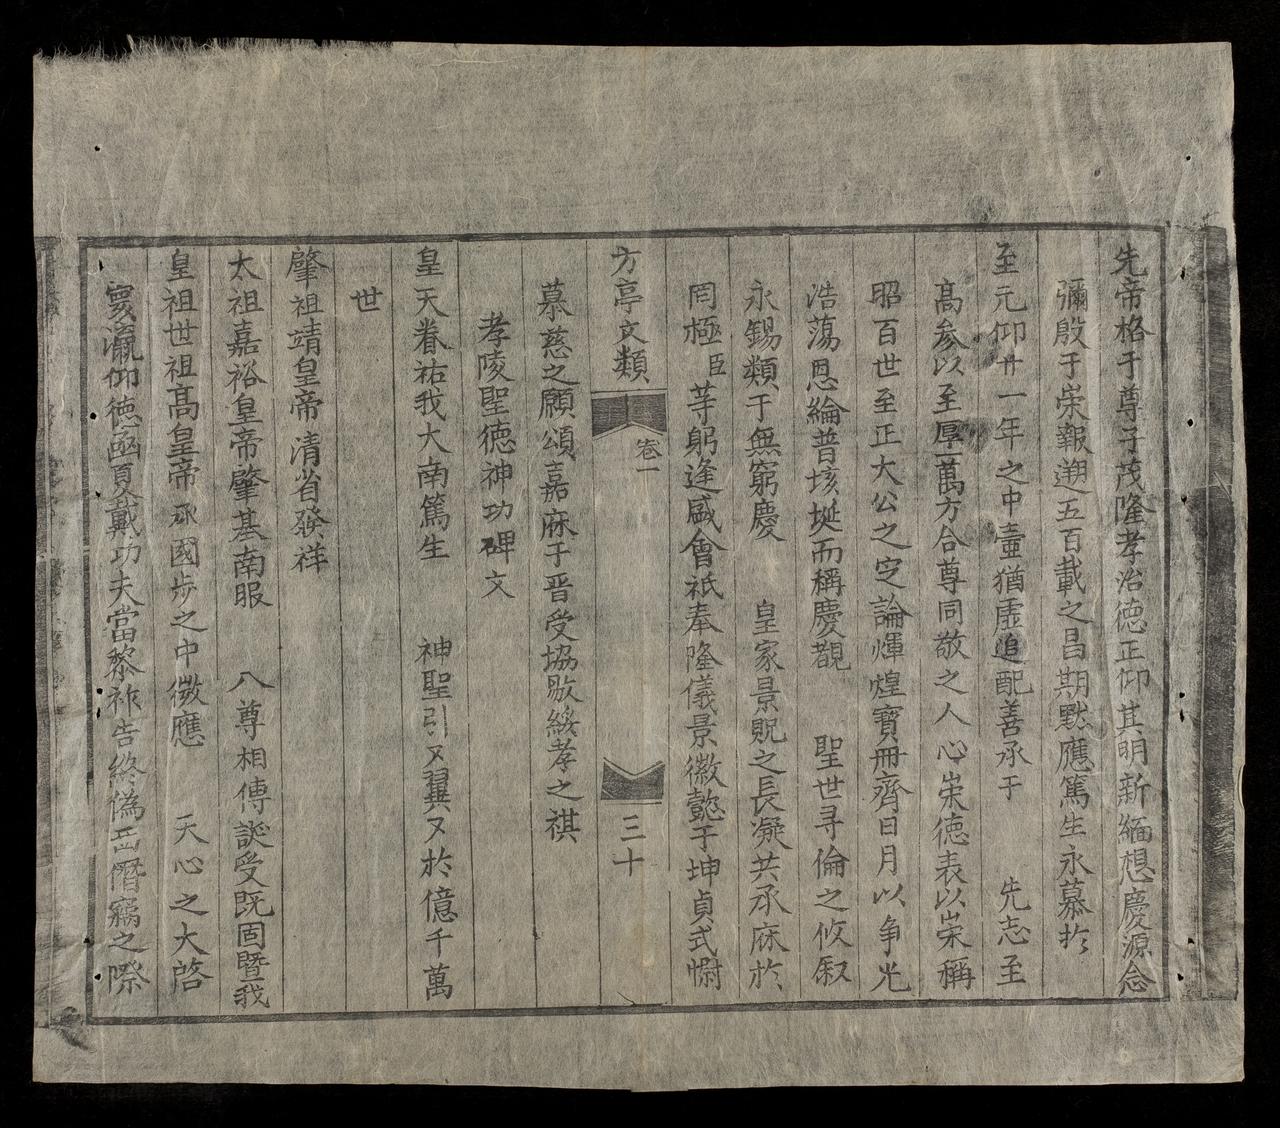 先帝格于尊予茂隆孝治德正仰其明新緬想慶源念
彌殷于崇報遡五百載之昌期默應篤生永慕扵
至元仰廾一年之中壼猶虛追配善承于　先志至
髙参以至厚萬方合尊同敬之人心崇德表以崇稱
昭百世至正大公之定論煇煌寳冊齊日月以争光
浩蕩恩綸普垓埏而稱慶覩　聖世㝷倫之攸叙
永錫類于無窮慶　皇家景貺之長凝共承庥於
罔極臣等躬逢盛會祇奉隆儀景徽懿于坤貞式慰
方亭文類　卷一　三十
慕慈之願頌嘉庥于晋受協敭綏孝之祺
孝陵聖德神功碑文
皇天眷祐我大南篤生　神聖引又翼又於億千萬
世
肇祖靖皇帝清省發祥
太祖嘉裕皇帝肇基南服　八尊相傳誕受旣固曁我
皇祖世祖髙皇帝承國步之中微應　天心之大啓
寰瀛仰德函夏戴功夫當黎祚告終偽岳僭竊之際